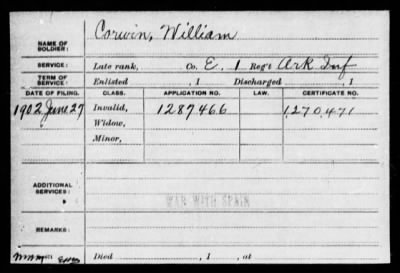 NAME OF SOLDIER: Corwin, William
SERVICE: Late rank, Co. E. 1 Reg't Ark Inf
TERM OF SERVICE: Enlisted , 1 Discharged , 1
DATE OF FILING. CLASS. APPLICATION NO. LAW. CERTIFICATE NO.
1902 June 27 Invalid, 1287466 1,270,471
Widow,
Minor,
ADDITIONAL SERVICES:
WAR WITH SPAIN
REMARKS:
Died , 1 , at